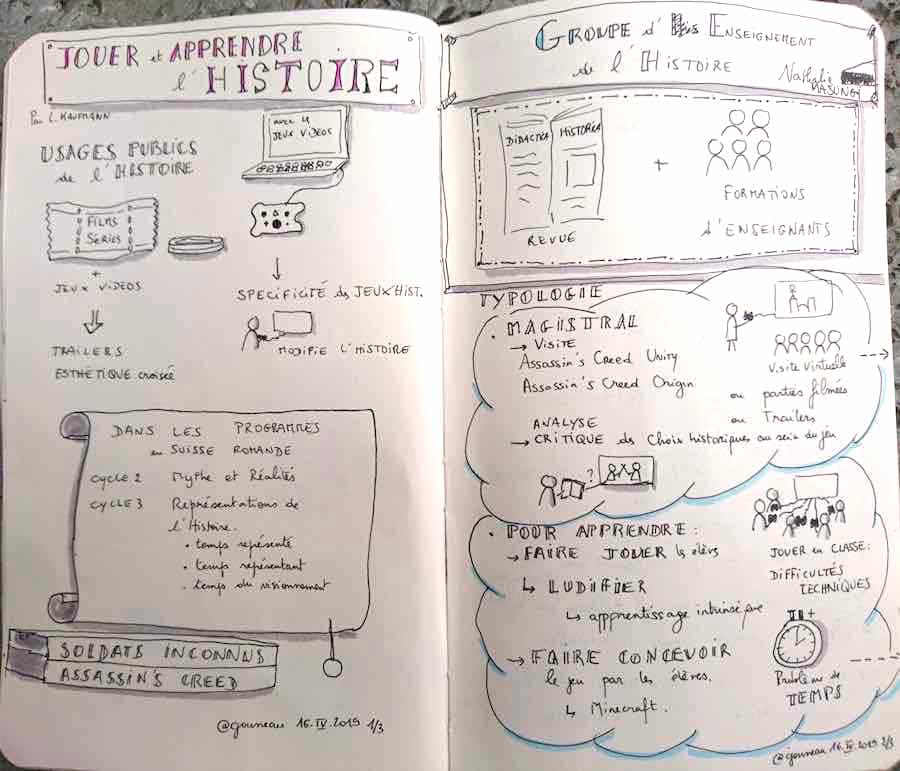 JOUER et APPRENDRE
l'HISTOIRE
Par L. KAUFMANN
avec les
JEUX VIDÉOS
USAGES PUBLICS
de l'HISTOIRE
FILMS
SERIES
+
JEUX VIDÉOS
TRAILERS
ESTHÉTIQUE croisée
SPECIFICITÉ des JEUX HIST.
MODIFIE L'HISTOIRE
DANS LES PROGRAMMES
en SUISSE ROMANDE
CYCLE 2 Mythe et Réalités
CYCLE 3 Représentations de
l'Histoire.
• temps représenté
• temps représentant
• temps du visionnement
SOLDATS INCONNUS
ASSASSIN'S CREED
@gouneau 16.IV.2019 1/3
GROUPE d' ENSEIGNEMENT
de l'HISTOIRE
Nathalie
MASUNGI
DIDACTICA HISTORICA
REVUE
+
FORMATIONS
d'ENSEIGNANTS
TYPOLOGIE
• MAGISTRAL
→ VISITE
Assassin's Creed Unity
Assassin's Creed Origin
Visite Virtuelle
ou parties filmées
ou Trailers
ANALYSE
→ CRITIQUE des Choix historiques au sein du jeu
?
• POUR APPRENDRE :
→ FAIRE JOUER les élèves
↳ LUDIFIER
↳ apprentissage intrinsèque
→ FAIRE CONCEVOIR
le jeu par les élèves.
↳ Minecraft.
JOUER en CLASSE :
DIFFICULTÉS
TECHNIQUES
Problème de
TEMPS
@gouneau 16.IV.2019 2/3